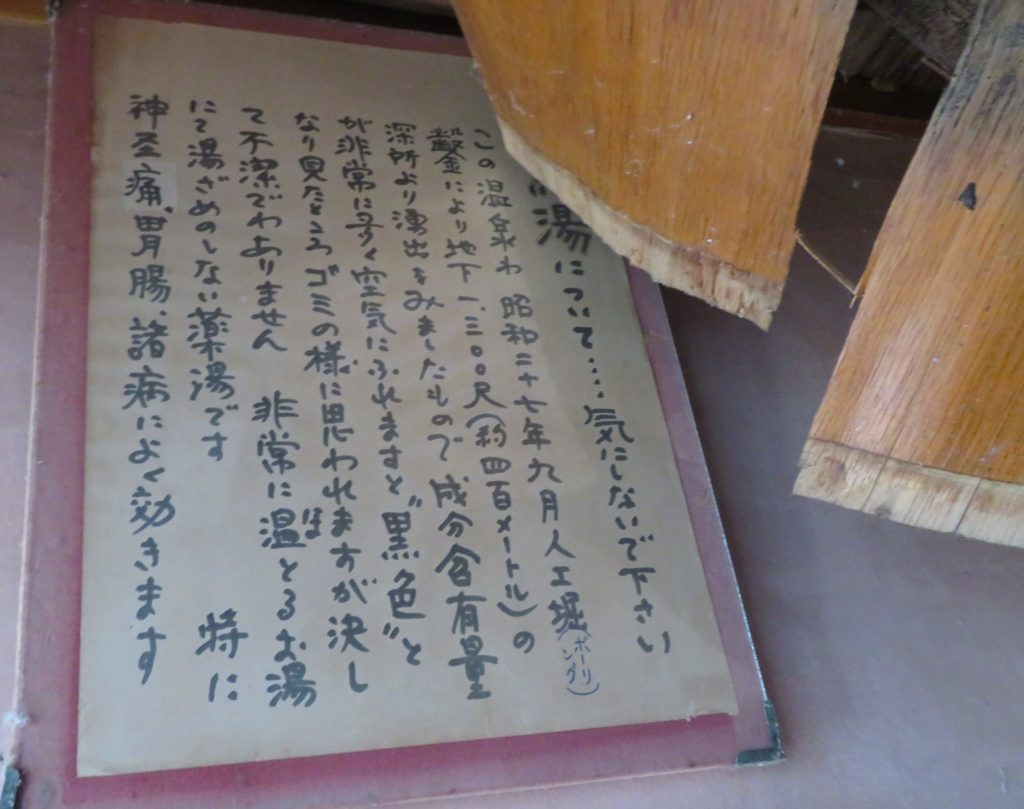 湯について‥‥‥気にしないで下さい
この温泉わ 昭和二十七年九月人工堀(ボーリング)
鑿により地下一、三〇〇尺(約四百メートル)の
深所より湧出をみましたもので 成分含有量
が非常に多く空気にふれますと〝黒色〟と
なり見たところゴミの様に思われますが決し
て不潔でわありません 非常に温(ほ)とるお湯
にて湯ざめのしない薬湯です 特に
神圣痛、胃腸、諸病によく効きます